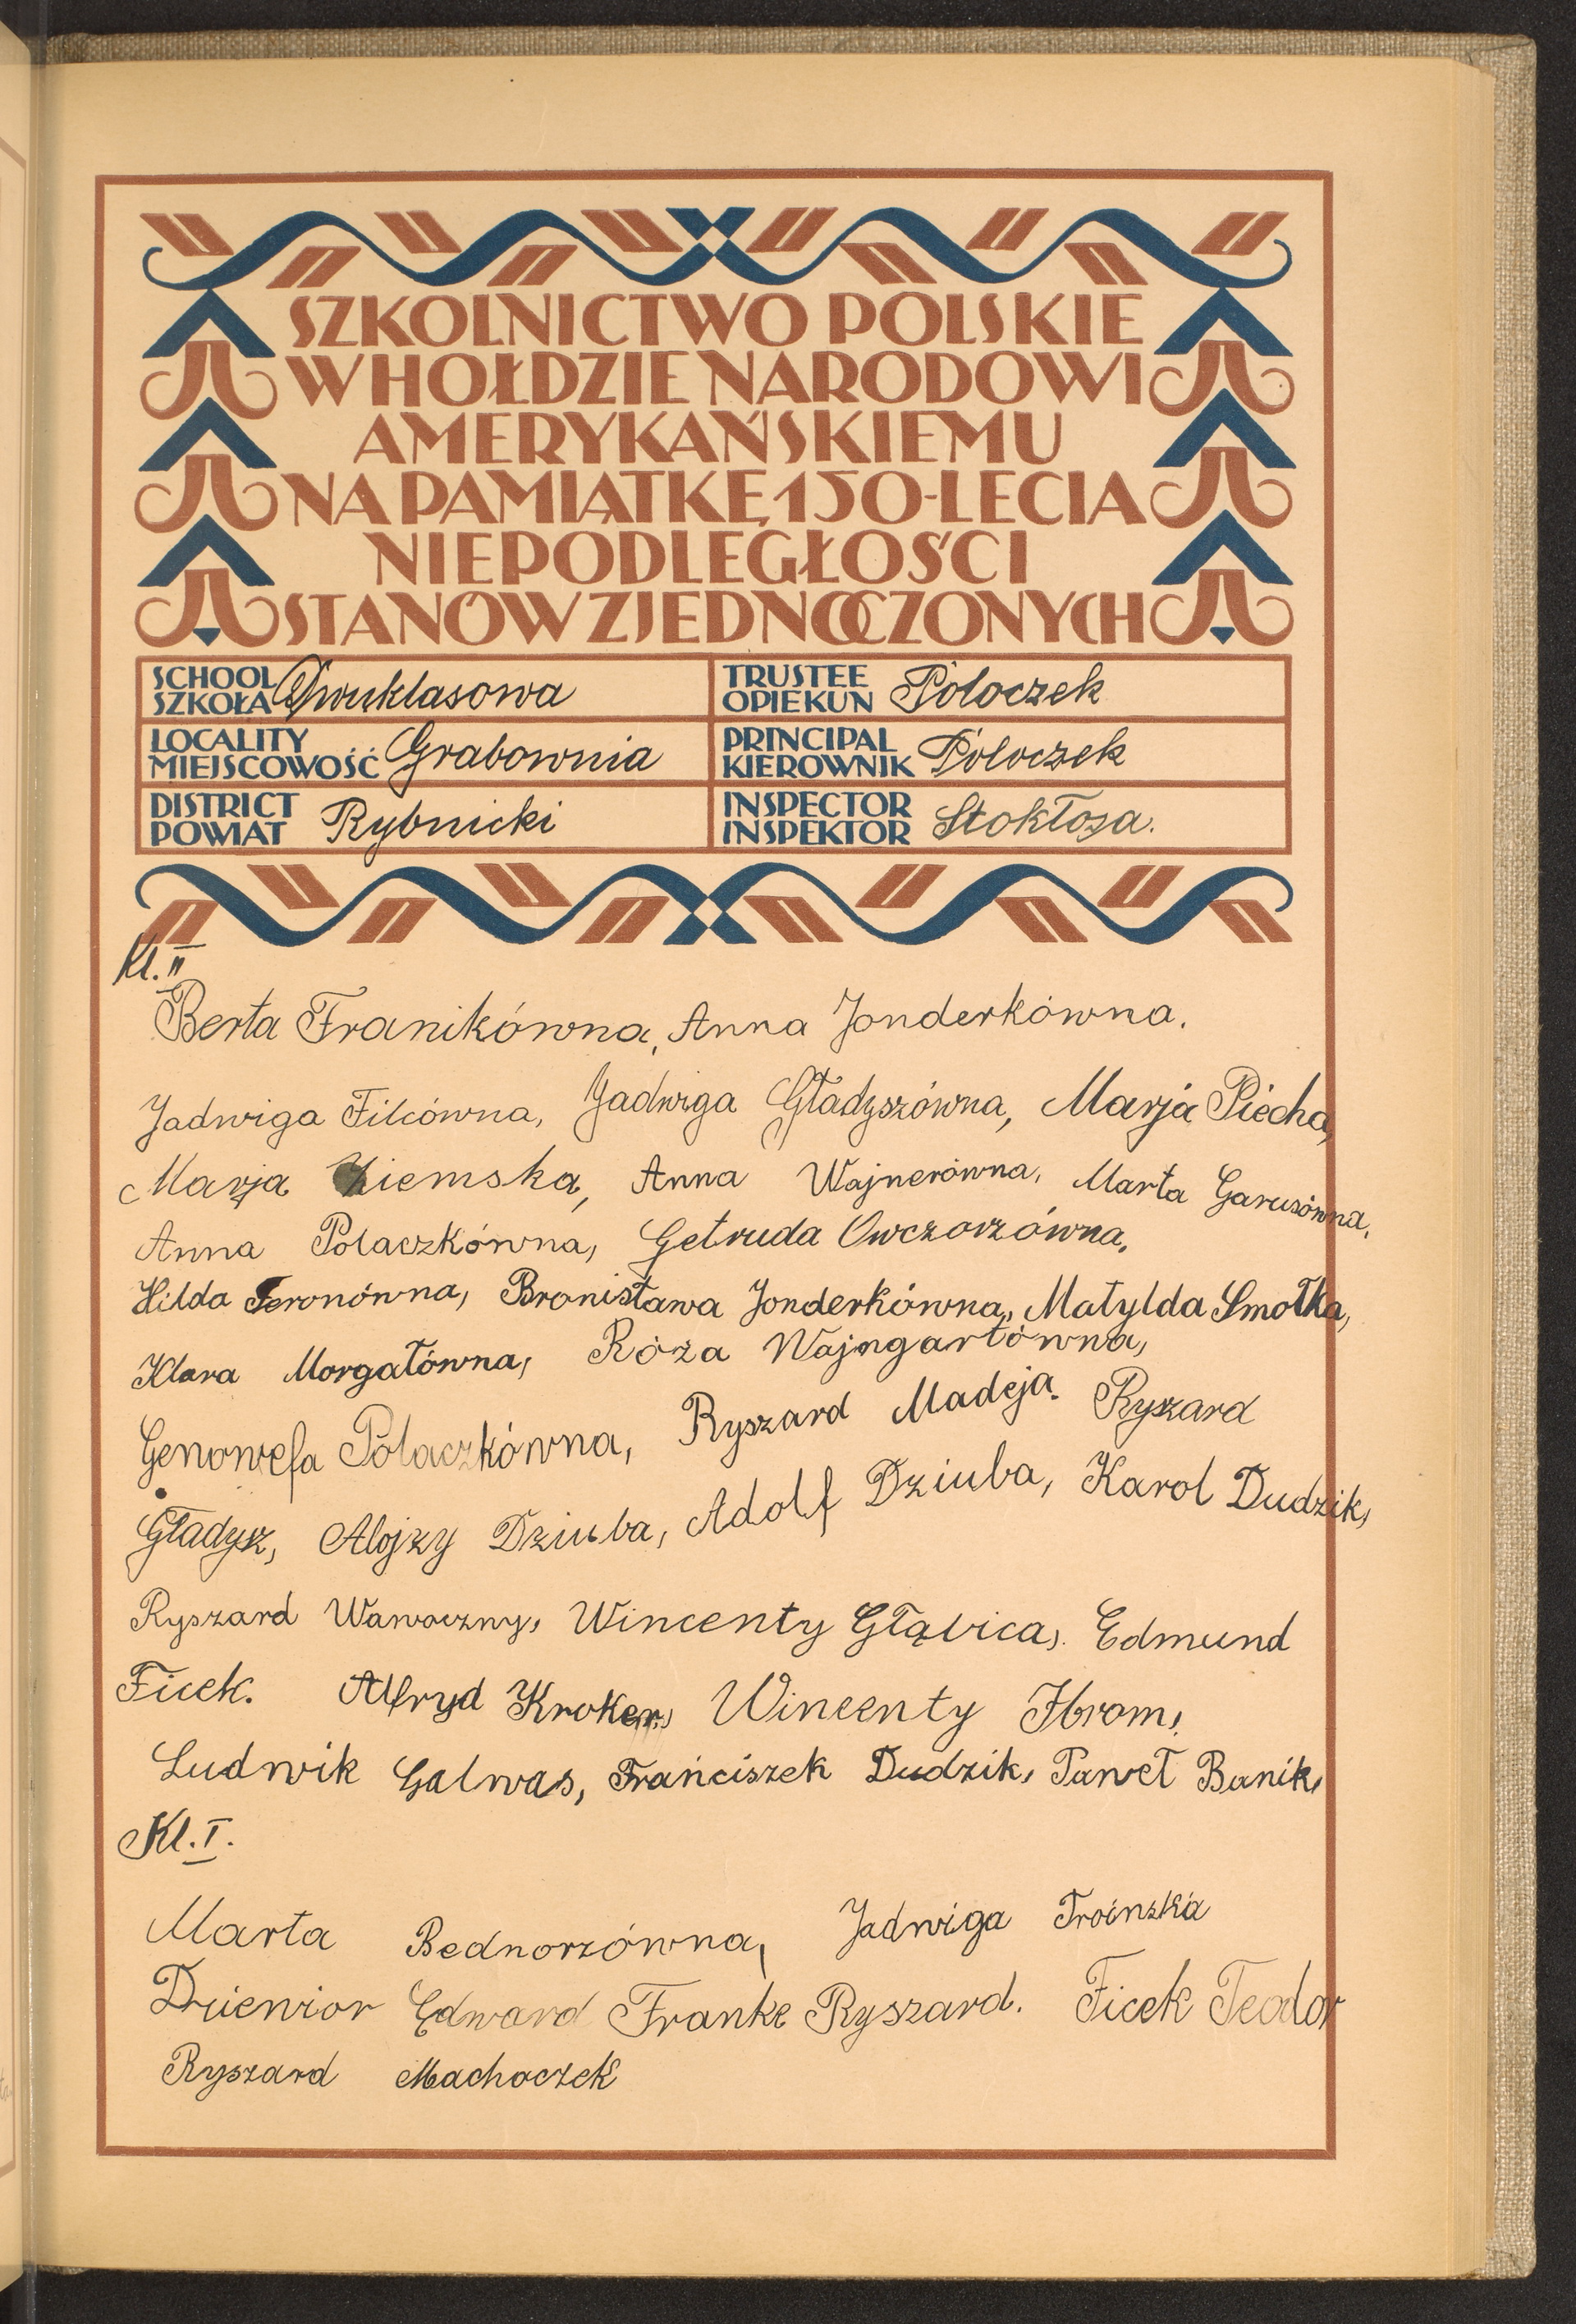 SZKOLNICTWO POLSKIE
W HOŁDZIE NARODOWI
AMERYKAŃSKIEMU
NA PAMIĄTKĘ 150-LECIA
NIEPODLEGŁOŚCI
STANÓW ZJEDNOCZONYCH
SCHOOL
SZKOŁA Dwuklasowa
TRUSTEE
OPIEKUN Poloczek
LOCALITY
MIEJSCOWOŚĆ Grabownia
PRINCIPAL
KIEROWNIK Poloczek
DISTRICT
POWIAT Rybnicki
INSPECTOR
INSPEKTOR Stokłosa.
Kl. II
Berta Franikówna, Anna Jonderkówna.
Jadwiga Filcówna, Jadwiga Gładyszówna, Marja Piecha,
Marja Ziemska, Anna Wajnerówna, Marta Garusówna,
Anna Polaczkówna, Getruda Owczorzówna,
Hilda Feronówna, Bronisława Jonderkówna, Matylda Smołka,
Klara Morgałówna, Róża Wajngartówna,
Genowefa Polaczkówna, Ryszard Madeja. Ryszard
Gładysz, Alojzy Dziuba, Adolf Dziuba, Karol Dudzik,
Ryszard Wawoczny, Wincenty Głąbica, Edmund
Ficek. Alfryd Kroker, Wincenty Hrom,
Ludwik Galwas, Franciszek Dudzik, Paweł Banik,
Kl. I.
Marta Bednorzówna, Jadwiga Troinzka
Dziewior Edward Franke Ryszard. Ficek Teodor
Ryszard Machoczek